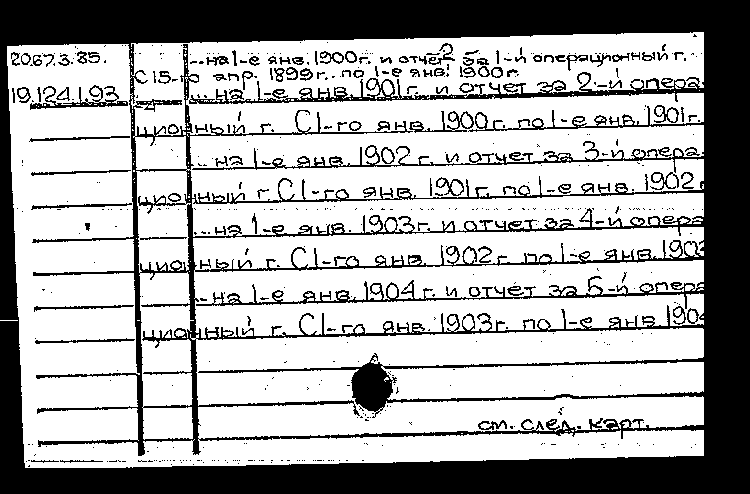 20.67.3.85. ...на 1-е янв. 1900г. и отчет за 1-й операционный г.
С 15-го апр. 1899г. по 1-е янв. 1900г.
19.124.1.93 ...на 1-е янв. 1901г. и отчет за 2-й опера-
ционный г. С 1-го янв. 1900г. по 1-е янв. 1901г.
...на 1-е янв. 1902г. и отчет за 3-й опера-
ционный г. С 1-го янв. 1901г. по 1-е янв. 1902г
...на 1-е янв. 1903г. и отчет за 4-й опера
ционный г. С 1-го янв. 1902г. по 1-е янв. 1903
...на 1-е янв. 1904г. и отчет за 5-й опера
ционный г. С 1-го янв. 1903г. по 1-е янв. 1904
см. след. карт.